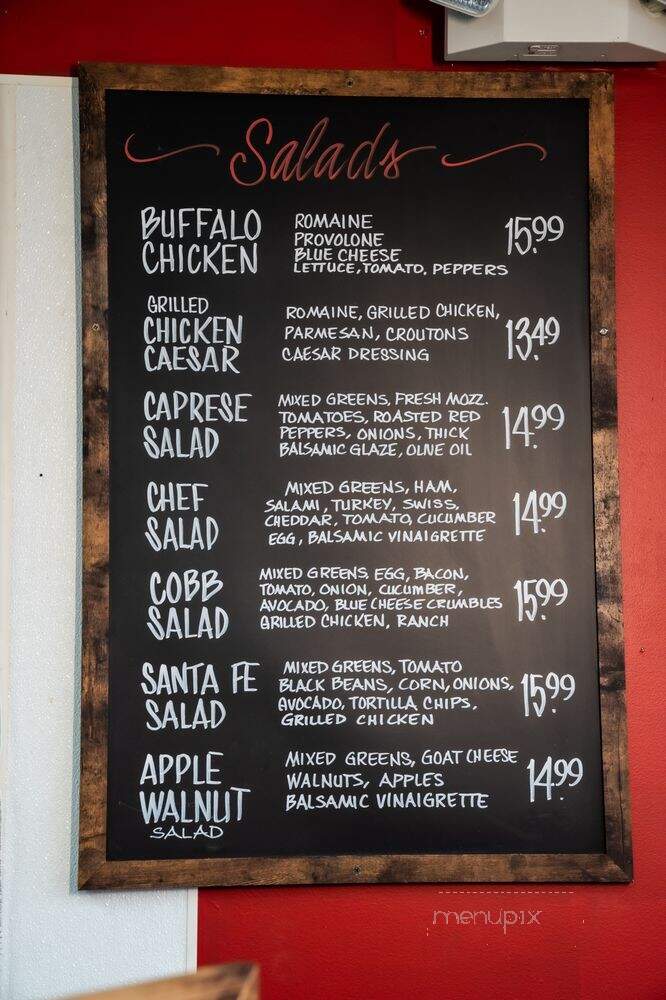 Salads
BUFFALO
CHICKEN
ROMAINE
PROVOLONE
BLUE CHEESE
LETTUCE, TOMATO. PEPPERS
15.99
GRILLED
CHICKEN
CAESAR
ROMAINE, GRILLED CHICKEN,
PARMESAN, CROUTONS
CAESAR DRESSING
13.49
CAPRESE
SALAD
MIXED GREENS, FRESH MOZZ.
TOMATOES, ROASTED RED
PEPPERS, ONIONS, THICK
BALSAMIC GLAZE, OLIVE OIL
14.99
CHEF
SALAD
MIXED GREENS, HAM,
SALAMI, TURKEY, SWISS,
CHEDDAR, TOMATO, CUCUMBER
EGG, BALSAMIC VINAIGRETTE
14.99
COBB
SALAD
MIXED GREENS, EGG, BACON,
TOMATO, ONION, CUCUMBER,
AVOCADO, BLUE CHEESE CRUMBLES
GRILLED CHICKEN, RANCH
15.99
SANTA FE
SALAD
MIXED GREENS, TOMATO
BLACK BEANS, CORN, ONIONS,
AVOCADO, TORTILLA CHIPS,
GRILLED CHICKEN
15.99
APPLE
WALNUT
SALAD
MIXED GREENS, GOAT CHEESE
WALNUTS, APPLES
BALSAMIC VINAIGRETTE
14.99
menupix